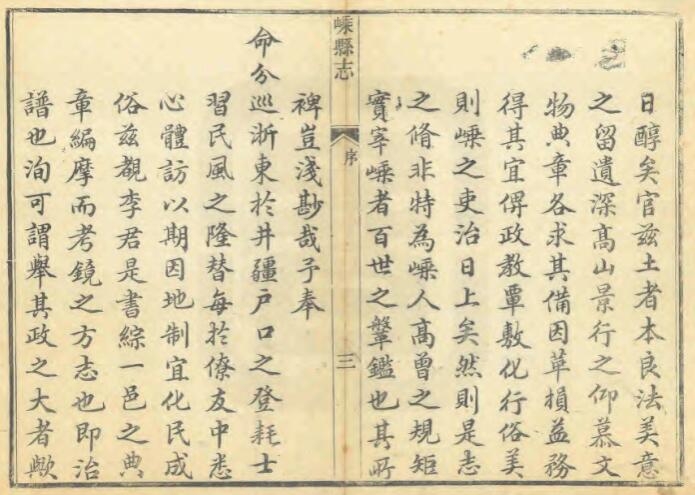 日醇矣官兹土者本良法美意
之留遺深高山景行之仰慕文
物典章各求其備因革損益務
得其宜俾政教覃敷化行俗美
則嵊之吏治日上矣然則是志
之脩非特為嵊人高曾之規矩
實宰嵊者百世之鞶鑑也其所
嵊縣志
序
三
裨豈淺尠哉予奉
命分巡浙東於井疆戶口之登耗士
習民風之隆替每於僚友中悉
心體訪以期因地制宜化民成
俗兹覩李君是書綜一邑之典
章編摩而考鏡之方志也即治
譜也洵可謂舉其政之大者歟